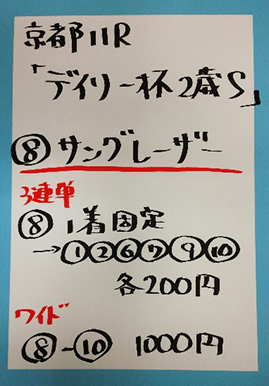 京都11R
「デイリー杯2歳S」
⑧サングレーザー
3連単
⑧1着固定
→①②⑥⑦⑨⑩
各200円
ワイド
⑧-⑩ 1000円